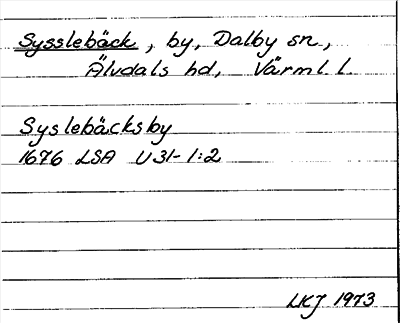 Sysslebäck, by, Dalby sn,
Älvdals hd, Värml. l.
Syslebäcksby
1676 LSA U31-1:2
LKJ 1973